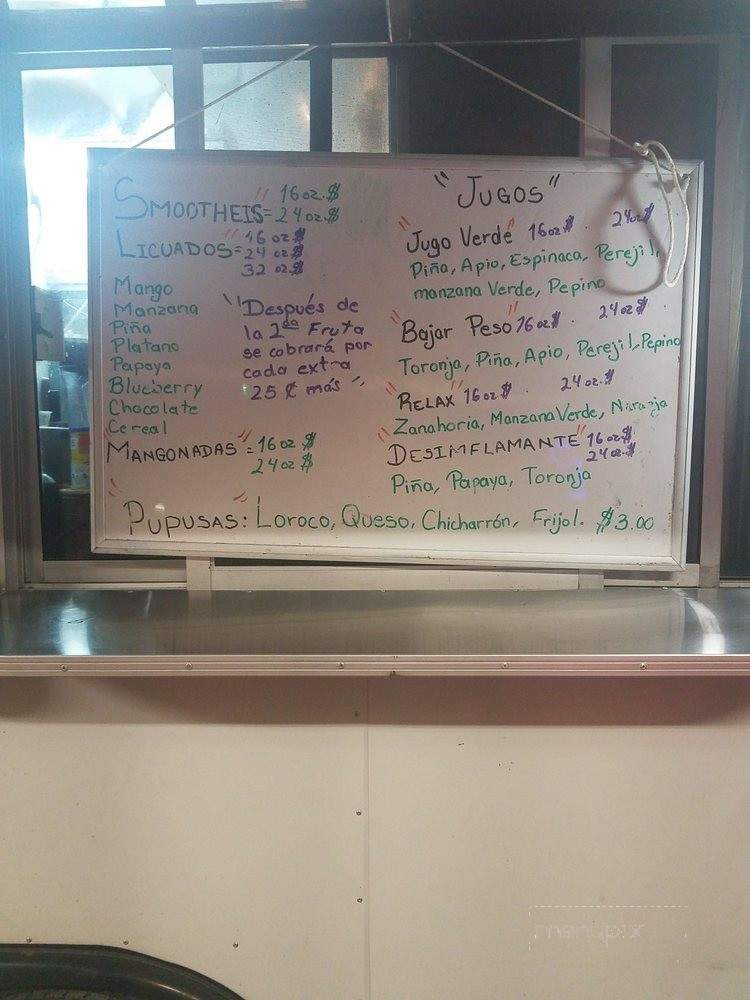 SMOOTHEIS = 16 oz. $
24 oz $
LICUADOS = 16 oz $
24 oz $
32 oz $
Mango
Manzana
Piña
Platano
Papaya
Blueberry
Chocolate
Cereal
"Después de
la 2da Fruta
se cobrará por
cada extra
25 ¢ más"
"MANGONADAS" = 16 oz $
24 oz $
"JUGOS"
"Jugo Verde" 16 oz $ . 24 oz $
Piña, Apio, Espinaca, Perejil,
manzana Verde, Pepino
"Bajar Peso" 16 oz $ . 24 oz $
Toronja, Piña, Apio, Perejil, Pepino
"RELAX" 16 oz $ . 24 oz $
Zanahoria, Manzana Verde, Naranja
"DESIMFLAMANTE" 16 oz $
24 oz $
Piña, Papaya, Toronja
"PUPUSAS": Loroco, Queso, Chicharrón, Frijol. $3.00
menupix